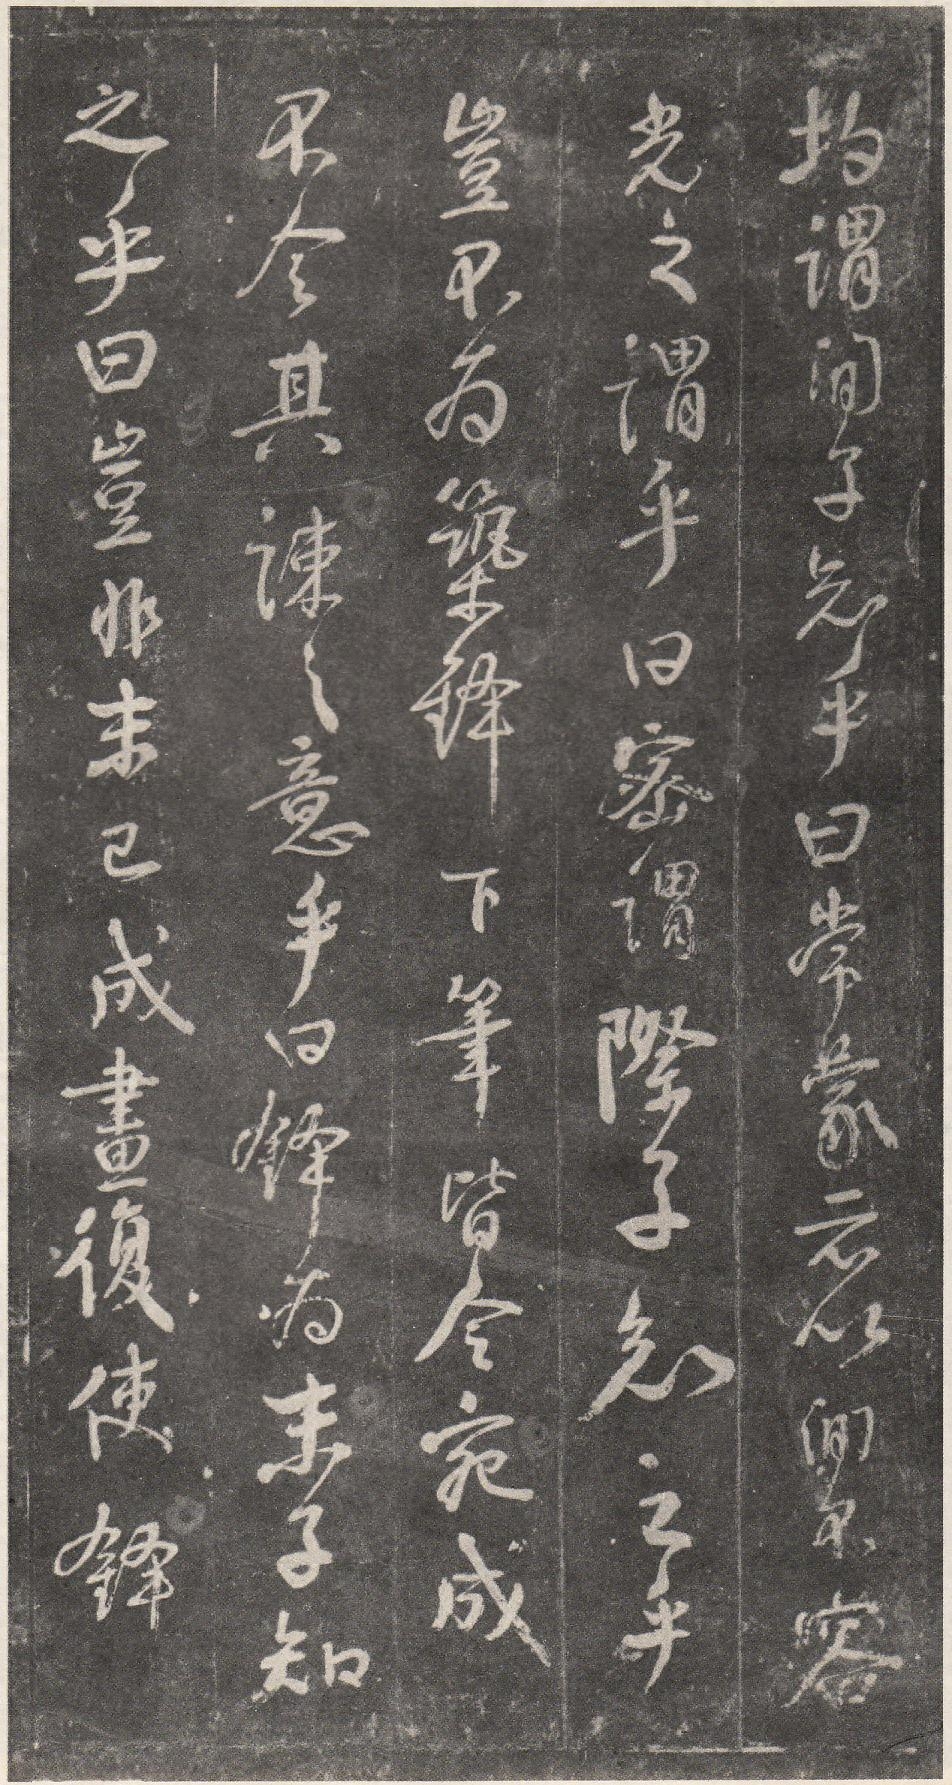 均謂間子知乎曰嘗蒙示以間不容
光之謂乎曰密謂際子知之乎
豈不為築鋒下筆皆令宛成
不令其疎之意乎曰鋒為末子知
之乎曰豈非末已成畫復使鋒